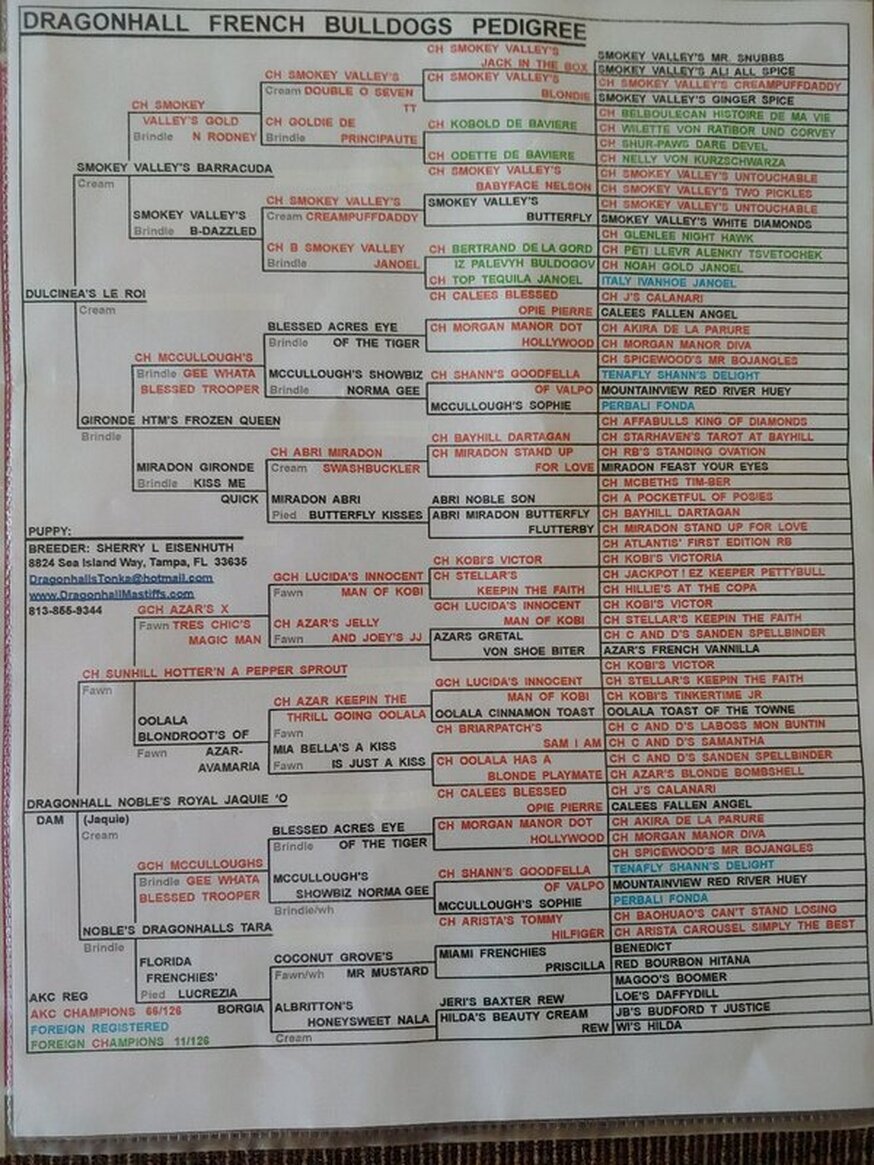 DRAGONHALL FRENCH BULLDOGS PEDIGREE
CH SMOKEY VALLEY'S
JACK IN THE BOX
SMOKEY VALLEY'S MR. SNUBBS
SMOKEY VALLEY'S ALI ALL SPICE
CH SMOKEY VALLEY'S
Cream DOUBLE O SEVEN
TT
CH SMOKEY VALLEY'S
BLONDIE
CH SMOKEY VALLEY'S CREAMPUFFDADDY
SMOKEY VALLEY'S GINGER SPICE
CH SMOKEY
VALLEY'S GOLD
Brindle N RODNEY
CH GOLDIE DE
Brindle PRINCIPAUTE
CH KOBOLD DE BAVIERE
CH BELBOULECAN HISTOIRE DE MA VIE
CH WILETTE VON RATIBOR UND CORVEY
CH ODETTE DE BAVIERE
CH SHUR-PAWS DARE DEVEL
CH NELLY VON KURZSCHWARZA
SMOKEY VALLEY'S BARRACUDA
Cream
CH SMOKEY VALLEY'S
BABYFACE NELSON
CH SMOKEY VALLEY'S UNTOUCHABLE
CH SMOKEY VALLEY'S TWO PICKLES
SMOKEY VALLEY'S
Brindle B-DAZZLED
CH SMOKEY VALLEY'S
Cream CREAMPUFFDADDY
SMOKEY VALLEY'S
BUTTERFLY
CH SMOKEY VALLEY'S UNTOUCHABLE
SMOKEY VALLEY'S WHITE DIAMONDS
CH B SMOKEY VALLEY
Brindle JANOEL
CH BERTRAND DE LA GORD
IZ PALEVYH BULDOGOV
CH GLENLEE NIGHT HAWK
CH PETI LLEVR ALENKIY TSVETOCHEK
CH TOP TEQUILA JANOEL
CH NOAH GOLD JANOEL
ITALY IVANHOE JANOEL
DULCINEA'S LE ROI
Cream
CH CALEES BLESSED
OPIE PIERRE
CH J'S CALANARI
CALEES FALLEN ANGEL
BLESSED ACRES EYE
Brindle OF THE TIGER
CH MORGAN MANOR DOT
HOLLYWOOD
CH AKIRA DE LA PARURE
CH MORGAN MANOR DIVA
CH MCCULLOUGH'S
Brindle GEE WHATA
BLESSED TROOPER
MCCULLOUGH'S SHOWBIZ
Brindle NORMA GEE
CH SHANN'S GOODFELLA
OF VALPO
CH SPICEWOOD'S MR BOJANGLES
TENAFLY SHANN'S DELIGHT
MCCULLOUGH'S SOPHIE
MOUNTAINVIEW RED RIVER HUEY
PERBALI FONDA
GIRONDE HTM'S FROZEN QUEEN
Brindle
CH BAYHILL DARTAGAN
CH AFFABULLS KING OF DIAMONDS
CH STARHAVEN'S TAROT AT BAYHILL
MIRADON GIRONDE
Brindle KISS ME
QUICK
CH ABRI MIRADON
Cream SWASHBUCKLER
CH MIRADON STAND UP
FOR LOVE
CH RB'S STANDING OVATION
MIRADON FEAST YOUR EYES
MIRADON ABRI
Pied BUTTERFLY KISSES
ABRI NOBLE SON
CH MCBETHS TIM-BER
CH A POCKETFUL OF POSIES
ABRI MIRADON BUTTERFLY
FLUTTERBY
CH BAYHILL DARTAGAN
CH MIRADON STAND UP FOR LOVE
PUPPY:
BREEDER: SHERRY L EISENHUTH
8824 Sea Island Way, Tampa, FL 33635
DragonhallsTonka@hotmail.com
www.DragonhallMastiffs.com
813-855-9344
CH KOBI'S VICTOR
CH ATLANTIS' FIRST EDITION RB
CH KOBI'S VICTORIA
GCH LUCIDA'S INNOCENT
Fawn MAN OF KOBI
CH STELLAR'S
KEEPIN THE FAITH
CH JACKPOT! EZ KEEPER PETTYBULL
CH HILLIE'S AT THE COPA
GCH AZAR'S X
Fawn TRES CHIC'S
MAGIC MAN
CH AZAR'S JELLY
Fawn AND JOEY'S JJ
GCH LUCIDA'S INNOCENT
MAN OF KOBI
CH KOBI'S VICTOR
CH STELLAR'S KEEPIN THE FAITH
AZARS GRETAL
VON SHOE BITER
CH C AND D'S SANDEN SPELLBINDER
AZAR'S FRENCH VANNILLA
CH SUNHILL HOTTER'N A PEPPER SPROUT
Fawn
GCH LUCIDA'S INNOCENT
MAN OF KOBI
CH KOBI'S VICTOR
CH STELLAR'S KEEPIN THE FAITH
OOLALA
BLONDROOT'S OF
Fawn AZAR-
AVAMARIA
CH AZAR KEEPIN THE
THRILL GOING OOLALA
Fawn
OOLALA CINNAMON TOAST
CH KOBI'S TINKERTIME JR
OOLALA TOAST OF THE TOWNE
MIA BELLA'S A KISS
Fawn IS JUST A KISS
CH BRIARPATCH'S
SAM I AM
CH C AND D'S LABOSS MON BUNTIN
CH C AND D'S SAMANTHA
CH OOLALA HAS A
BLONDE PLAYMATE
CH C AND D'S SANDEN SPELLBINDER
CH AZAR'S BLONDE BOMBSHELL
DRAGONHALL NOBLE'S ROYAL JAQUIE 'O
DAM (Jaquie)
Cream
CH CALEES BLESSED
OPIE PIERRE
CH J'S CALANARI
CALEES FALLEN ANGEL
BLESSED ACRES EYE
Brindle OF THE TIGER
CH MORGAN MANOR DOT
HOLLYWOOD
CH AKIRA DE LA PARURE
CH MORGAN MANOR DIVA
GCH MCCULLOUGHS
Brindle GEE WHATA
BLESSED TROOPER
MCCULLOUGH'S
SHOWBIZ NORMA GEE
Brindle/wh
CH SHANN'S GOODFELLA
OF VALPO
CH SPICEWOOD'S MR BOJANGLES
TENAFLY SHANN'S DELIGHT
MCCULLOUGH'S SOPHIE
MOUNTAINVIEW RED RIVER HUEY
PERBALI FONDA
NOBLE'S DRAGONHALLS TARA
Brindle
CH ARISTA'S TOMMY
HILFIGER
CH BAOHUAO'S CAN'T STAND LOSING
CH ARISTA CAROUSEL SIMPLY THE BEST
FLORIDA
FRENCHIES'
Pied LUCREZIA
BORGIA
COCONUT GROVE'S
Fawn/wh MR MUSTARD
MIAMI FRENCHIES
PRISCILLA
BENEDICT
RED BOURBON HITANA
ALBRITTON'S
HONEYSWEET NALA
Cream
JERI'S BAXTER REW
MAGOO'S BOOMER
LOE'S DAFFYDILL
HILDA'S BEAUTY CREAM
REW
JB'S BUDFORD T JUSTICE
WI'S HILDA
AKC REG
AKC CHAMPIONS 66/126
FOREIGN REGISTERED
FOREIGN CHAMPIONS 11/126